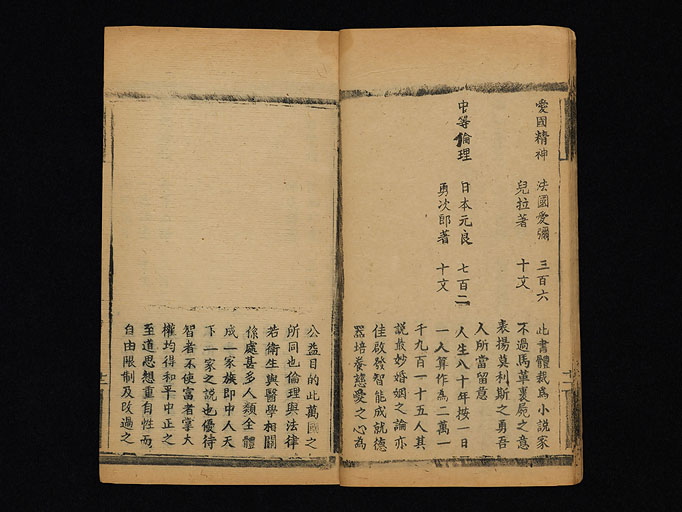 愛國精神 法國愛彌 三百六 此書體裁為小說家
兒拉著 十文 不過馬革裹屍之意
表揚莫利斯之勇吾
人所當留意
中等倫理 日本元良 七百二 人生八十年按一日
勇次郎著 十文 一人算作為二萬一
千九百一十五人其
說最妙婚姻之論亦
佳啟發智能成就德
器培養慈愛之心為
公益目的此萬國之
所同也倫理與法律
若衛生與醫學相關
係處甚多人類全體
成一家族即中人天
下一家之說也優待
智者不使富者掌大
權均得和平中正之
至道思想重自性而
自由限制及改過之